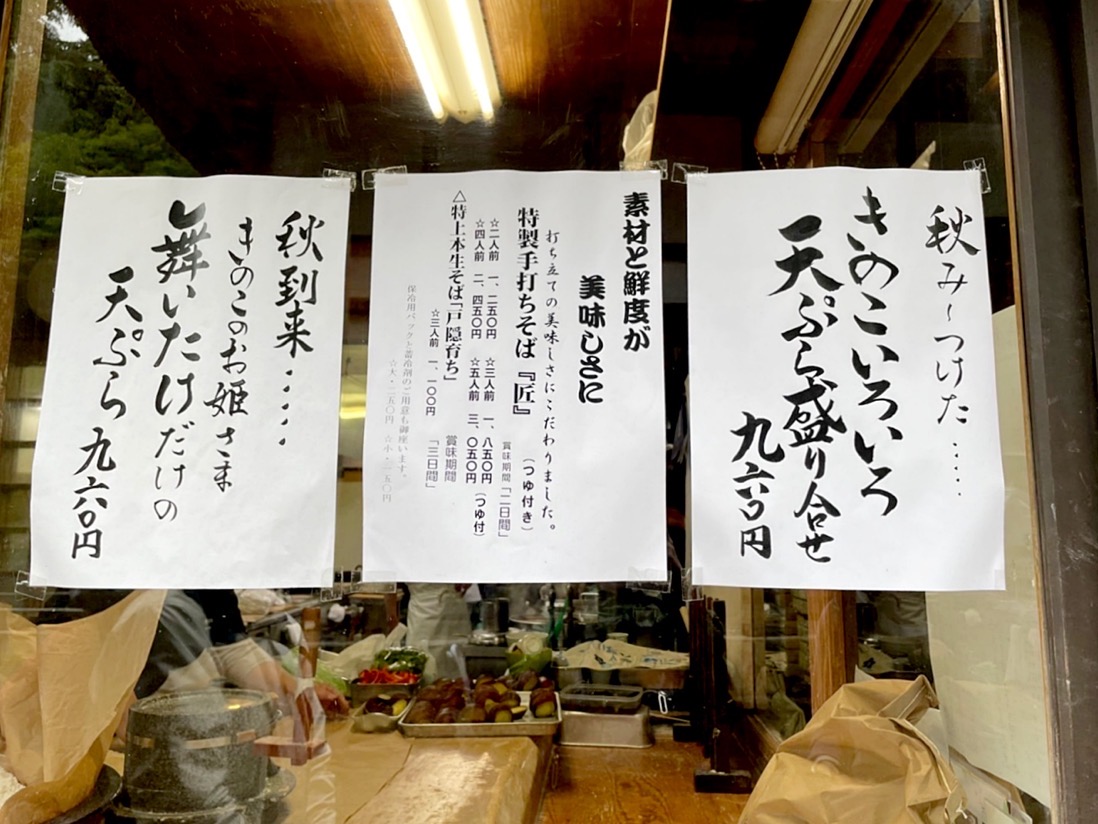 秋み〜つけた‥‥
きのこいろいろ
天ぷら盛り合せ
九六〇円
素材と鮮度が
美味しさに
打ち立ての美味しさにこだわりました。
特製手打ちそば『匠』(つゆ付き)
賞味期間「二日間」
☆二人前 一、二五〇円 ☆三人前 一、八五〇円
☆四人前 二、四五〇円 ☆五人前 三、〇五〇円(つゆ付)
△特上本生そば「戸隠育ち」 賞味期間
☆三人前 一、一〇〇円 「三日間」
保冷用パックと蓄冷剤のご用意も御座います。
☆大・二五〇円 ☆小・一五〇円
秋到来‥‥
きのこのお姫さま
舞いたけだけの
天ぷら 九六〇円